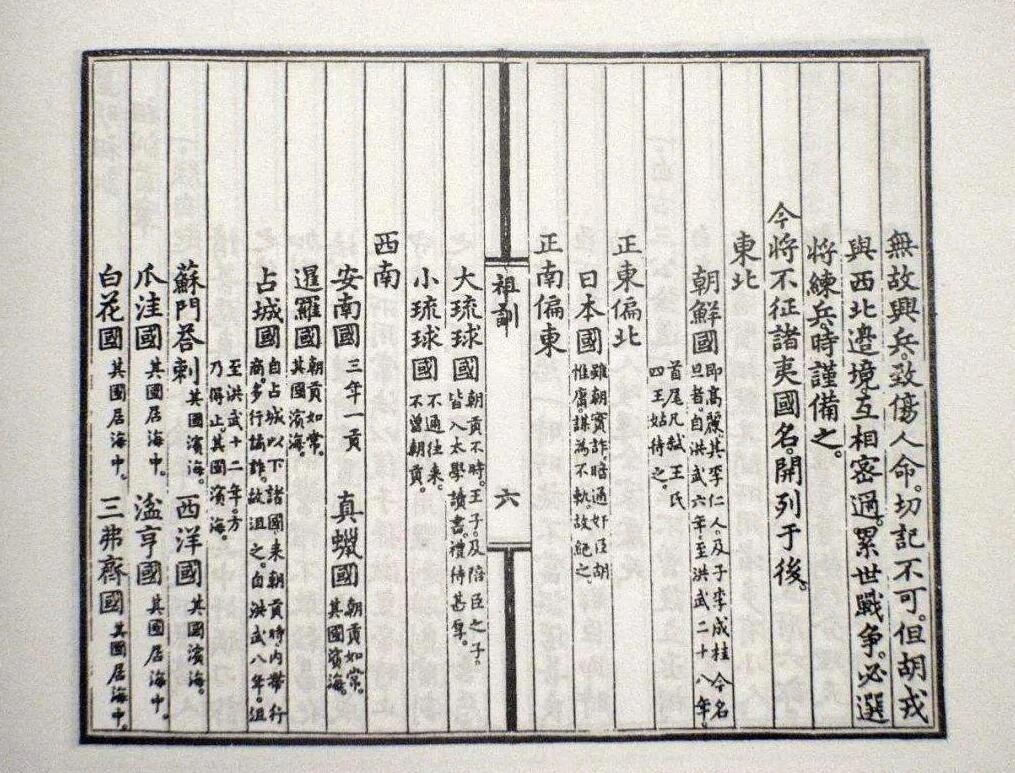 無故興兵。致傷人命。切記不可。但胡戎
與西北邊境互相密邇。累世戰争。必選
將練兵。時謹備之。
今將不征諸夷國名。開列于後。
東北
朝鮮國
即高麗。其李仁人。及子李成桂今名
旦者。自洪武六年。至洪武二十八年。
首尾凡弑王氏
四王姑待之。
正東偏北
日本國
雖朝實詐。暗通奸臣胡
惟庸。謀為不軌。故絶之。
正南偏東
祖訓
六
大琉球國
朝貢不時。王子。及陪臣之子。
皆入太學讀書。禮待甚厚。
小琉球國
不通往來。
不曾朝貢。
西南
安南國
三年一貢
真蠟國
朝貢如常。
其國濱海。
暹羅國
朝貢如常。
其國濱海。
占城國
自占城以下諸國。來朝貢時。内帶行
商。多行譎詐。故沮之。自洪武八年。沮
至洪武十二年。方
乃得止其國濱海。
蘇門荅剌
其國濱海。
西洋國
其國濱海。
爪洼國
其國居海中。
湓亨國
其國居海中。
白花國
其國居海中。
三弗齊國
其國居海中。